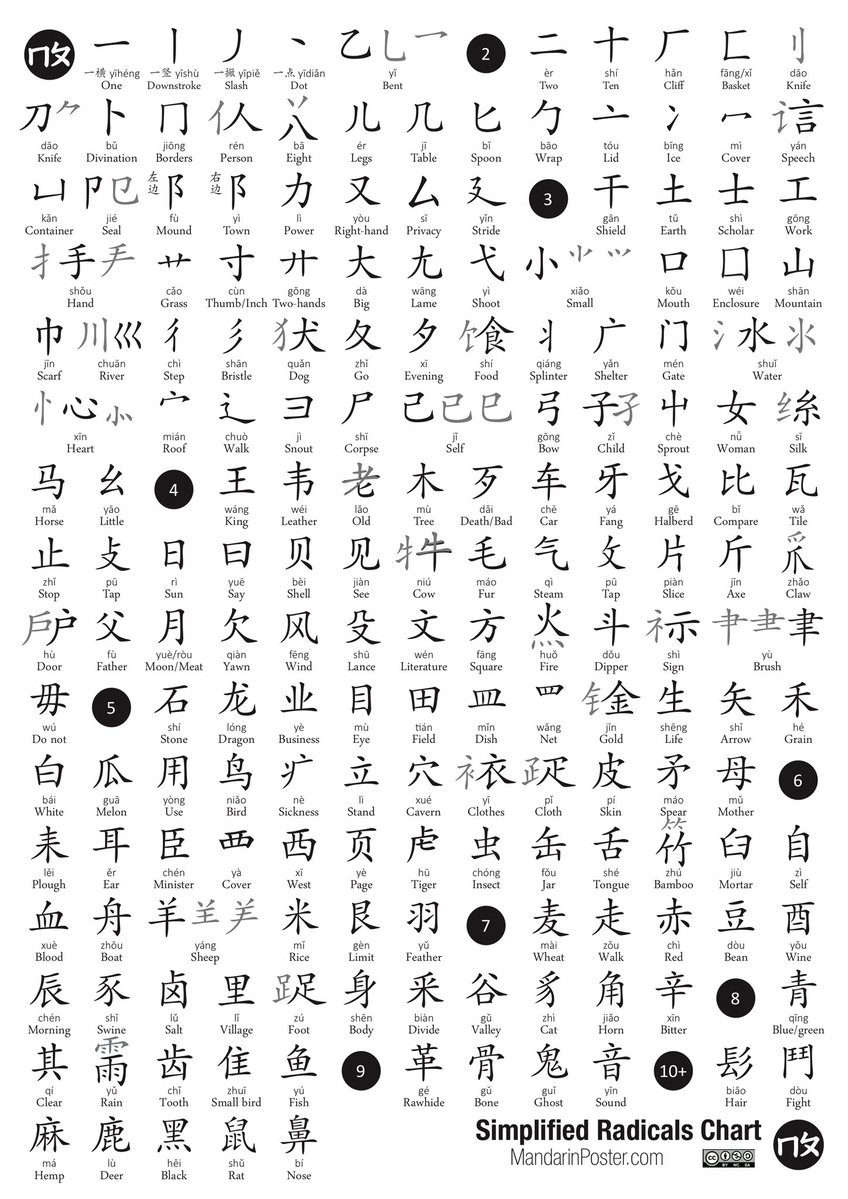 一 丨 丿 丶 乙乚乛 2 二 十 厂 匚 刂
一横 yīhéng 一竖 yīshù 一撇 yīpiě 一点 yīdiǎn yǐ èr shí hǎn fāng/xǐ dāo
One Downstroke Slash Dot Bent Two Ten Cliff Basket Knife
刀⺈ 卜 冂 亻人 丷八 儿 几 匕 勹 亠 冫 冖 讠言
dāo bǔ jiōng rén bā ér jī bǐ bāo tóu bīng mì yán
Knife Divination Borders Person Eight Legs Table Spoon Wrap Lid Ice Cover Speech
凵 卩㔾 左边 阝 右边 阝 力 又 厶 廴 3 干 土 士 工
kǎn jié fù yì lì yòu sī yǐn gān tǔ shì gōng
Container Seal Mound Town Power Right-hand Privacy Stride Shield Earth Scholar Work
扌手龵 艹 寸 廾 大 尢 弋 小⺌⺍ 口 囗 山
shǒu cǎo cùn gǒng dà wāng yì xiǎo kǒu wéi shān
Hand Grass Thumb/Inch Two-hands Big Lame Shoot Small Mouth Enclosure Mountain
巾 川巛 彳 彡 犭犬 夂 夕 饣食 丬 广 门 氵水氺
jīn chuān chì shān quǎn zhǐ xī shí qiáng yǎn mén shuǐ
Scarf River Step Bristle Dog Go Evening Food Splinter Shelter Gate Water
忄心⺗ 宀 辶 彐 尸 己已巳 弓 子孑 屮 女 纟糹
xīn mián chuò jì shī jǐ gōng zǐ chè nǚ sī
Heart Roof Walk Snout Corpse Self Bow Child Sprout Woman Silk
马 幺 4 王 韦 老 木 歹 车 牙 戈 比 瓦
mǎ yāo wáng wéi lǎo mù dǎi chē yá gē bǐ wǎ
Horse Little King Leather Old Tree Death/Bad Car Fang Halberd Compare Tile
止 攴 日 曰 贝 见 牜牛 毛 气 攵 片 斤 爪
zhǐ pū rì yuē bèi jiàn niú máo qì pū piàn jīn zhǎo
Stop Tap Sun Say Shell See Cow Fur Steam Tap Slice Axe Claw
戶户 父 月 欠 风 殳 文 方 火灬 斗 礻示 肀⺻聿
hù fù yuè/ròu qiàn fēng shū wén fāng huǒ dǒu shì yù
Door Father Moon/Meat Yawn Wind Lance Literature Square Fire Dipper Sign Brush
毋 5 石 龙 业 目 田 皿 罒 钅金 生 矢 禾
wú shí lóng yè mù tián mǐn wǎng jīn shēng shǐ hé
Do not Stone Dragon Business Eye Field Dish Net Gold Life Arrow Grain
白 瓜 用 鸟 疒 立 穴 衤衣 ⺪疋 皮 矛 母 6
bái guā yòng niǎo nè lì xué yī pǐ pí máo mǔ
White Melon Use Bird Sickness Stand Cavern Clothes Cloth Skin Spear Mother
耒 耳 臣 覀 西 页 虍 虫 缶 舌 ⺮竹 臼 自
lěi ěr chén yà xī yè hū chóng fǒu shé zhú jiù zì
Plough Ear Minister Cover West Page Tiger Insect Jar Tongue Bamboo Mortar Self
血 舟 羊⺷⺶ 米 艮 羽 7 麦 走 赤 豆 酉
xuè zhōu yáng mǐ gèn yǔ mài zǒu chì dòu yǒu
Blood Boat Sheep Rice Limit Feather Wheat Walk Red Bean Wine
辰 豕 卤 里 ⻊足 身 釆 谷 豸 角 辛 8 青
chén shǐ lǔ lǐ zú shēn biàn gǔ zhì jiǎo xīn qīng
Morning Swine Salt Village Foot Body Divide Valley Cat Horn Bitter Blue/green
其 ⻗雨 齿 隹 鱼 9 革 骨 鬼 音 10+ 髟 鬥
qí yǔ chǐ zhuī yú gé gǔ guǐ yīn biāo dòu
Clear Rain Tooth Small bird Fish Rawhide Bone Ghost Sound Hair Fight
麻 鹿 黑 鼠 鼻
má lù hēi shǔ bí
Hemp Deer Black Rat Nose
Simplified Radicals Chart
MandarinPoster.com
CC BY NC SA